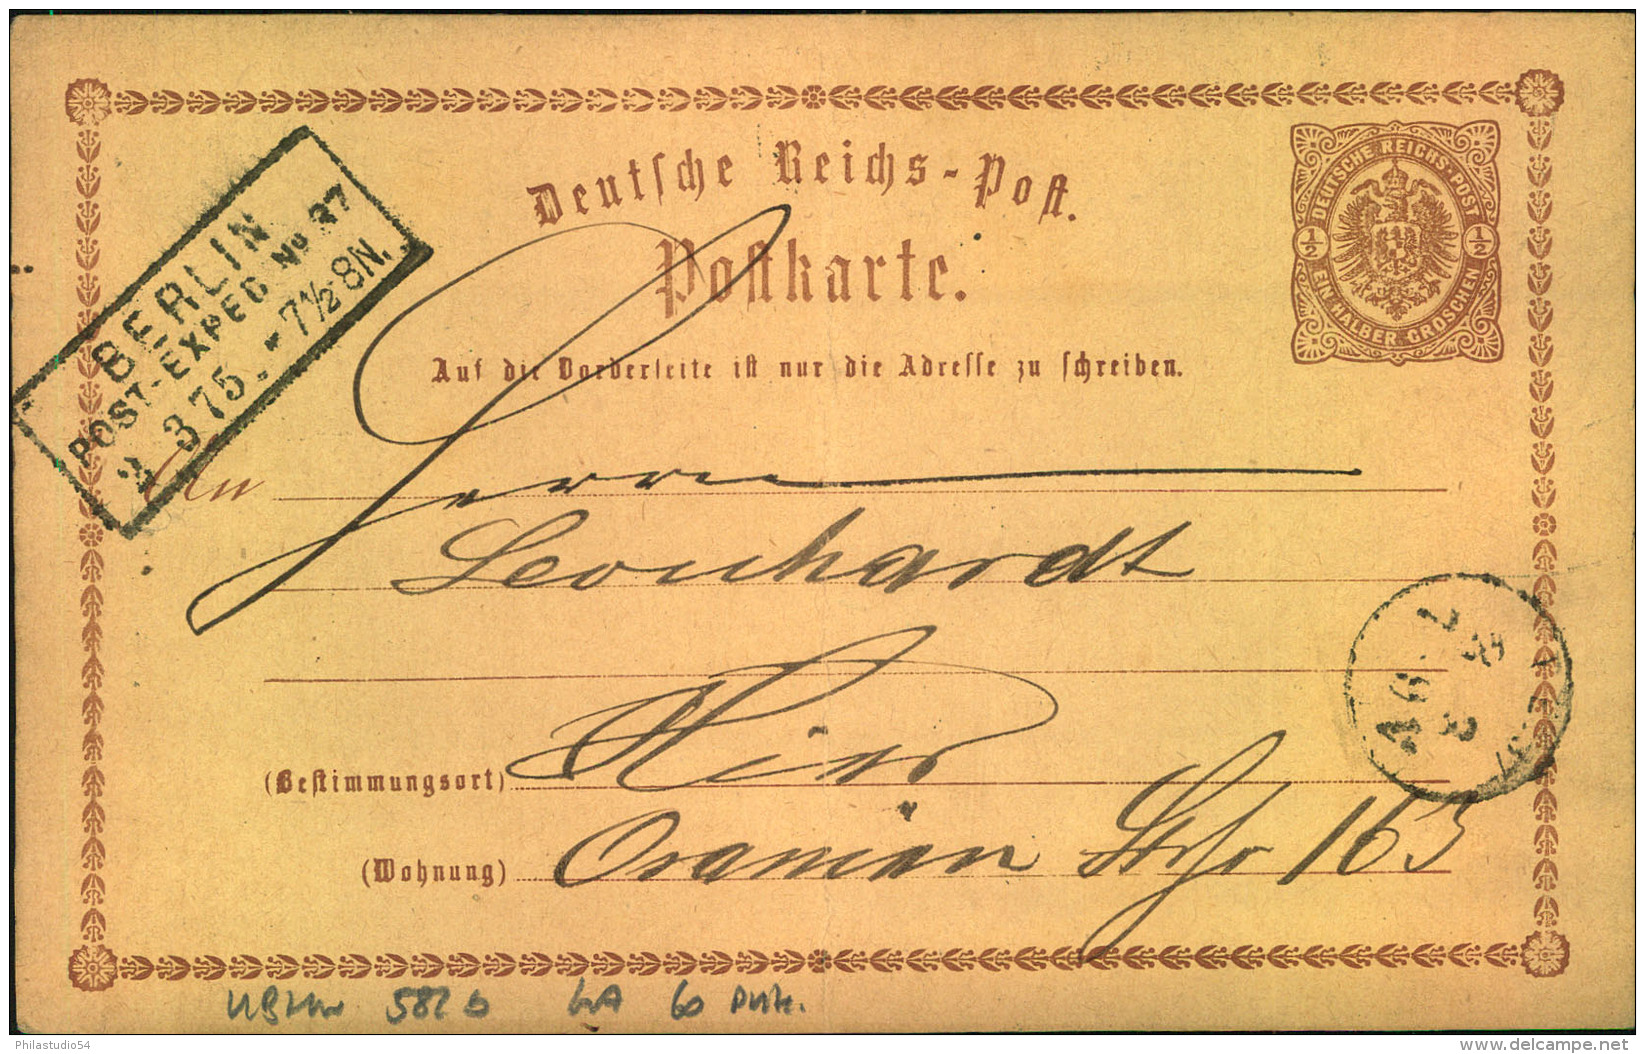 Deutsche Reichs-Post.
Postkarte.
DEUTSCHE REICHS-POST
½ ½
EIN HALBER GROSCHEN
Auf die Vorderseite ist nur die Adresse zu schreiben.
BERLIN
POST-EXPED No 37
2 3 75. -7½ 8N.
An Herrn
Leonhardt
(Bestimmungsort) Hier
(Wohnung) Oranien Str 163
582 b 60
Philastudio54
www.delcampe.net